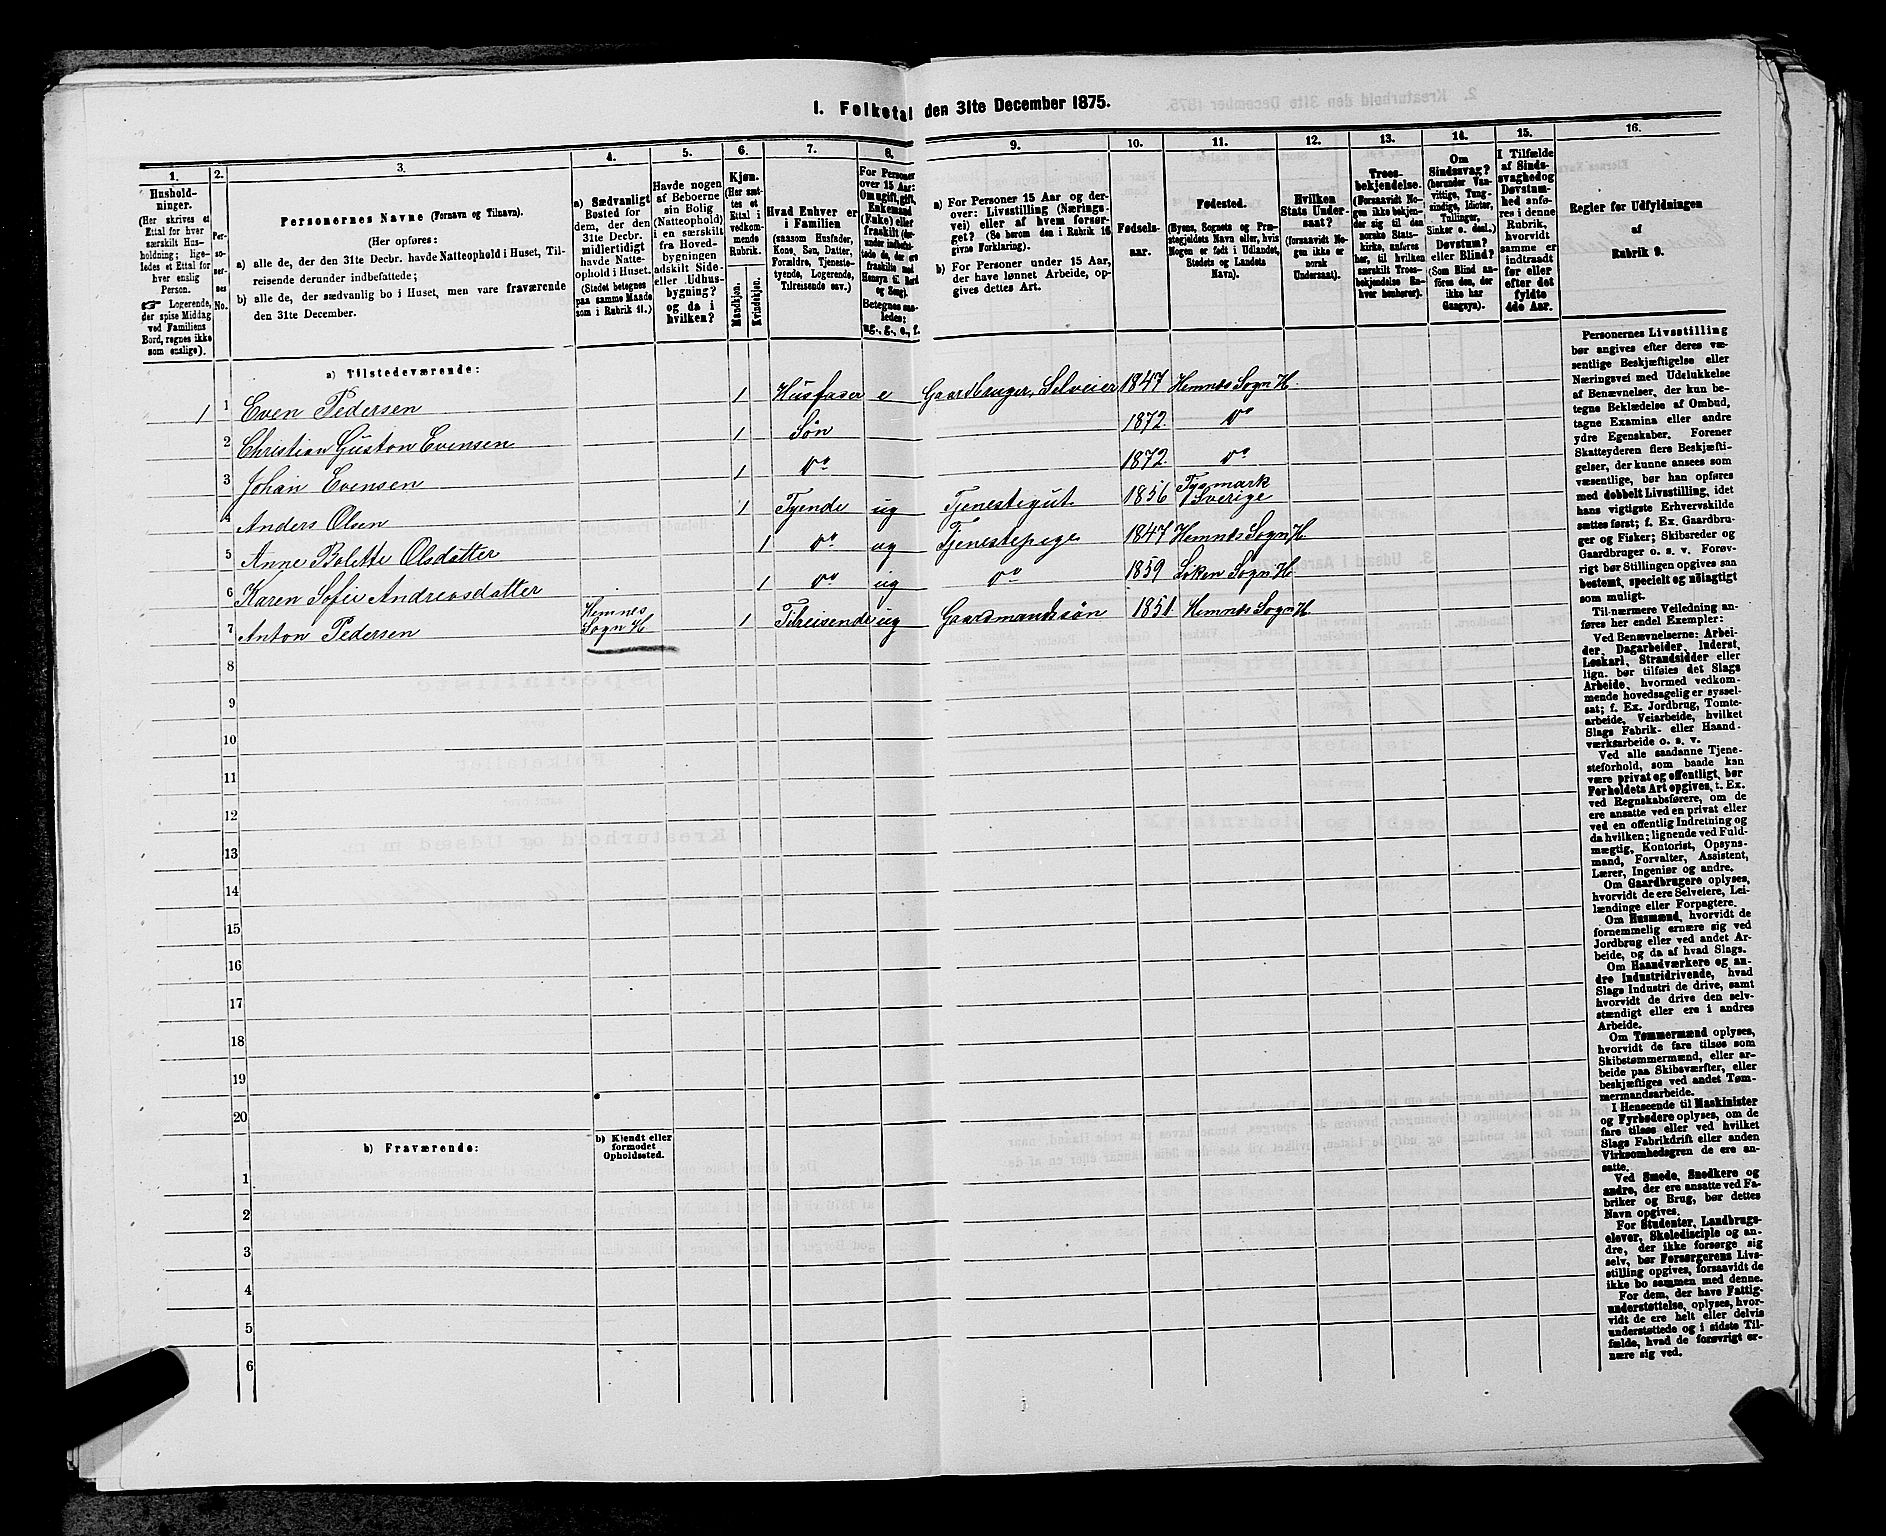 1. Folketal den 31te December 1875.
1.
2.
3.
4.
5.
6.
7.
8.
9.
10.
11.
12.
13.
14.
15.
16.
Hushold-
ninger.
(Her skrives et
Ettal for hver
særskilt Hus-
holdning; lige-
ledes et Ettal for
hver enslig
Person.
☞ Logerende,
der spise Middag
ved Familiens
Bord, regnes ikke
som enslige).
Per-
so-
ner-
nes
No.
Personernes Navne (Fornavn og Tilnavn).
(Her opføres:
a) alle de, der den 31te Decbr. havde Natteophold i Huset, Til-
reisende derunder indbefattede;
b) alle de, der sædvanlig bo i Huset, men vare fraværende
den 31te December.
a) Sædvanligt
Bosted for
dem, der den
31te Decbr.
midlertidigt
havde Natte-
ophold i Huset.
(Stedet betegnes
paa samme Maade
som i Rubrik 11.)
Havde nogen
af Beboerne
sin Bolig
(Natteophold)
i en særskilt
fra Hoved-
bygningen
adskilt Side-
eller Udhus-
bygning?
og da i
hvilken?
Kjøn.
(Her sæt-
tes et
Ettal i
vedkom-
mende
Rubrik.
Mandkjøn.
Kvindekjøn.
Hvad Enhver er
i Familien
(saasom Husfader,
Kone, Søn, Datter,
Forældre, Tjeneste-
tyende, Logerende,
Tilreisende osv.)
For Personer
over 15 Aar:
Om ugift, gift,
Enkemand
(Enke) eller
fraskilt
Betegnes saa-
ledes:
ug., g., e., f.
a) For Personer 15 Aar og der-
over: Livsstilling (Nærings-
vei) eller af hvem forsør-
get? (Se herom den i Rubrik 16
givne Forklaring).
b) For Personer under 15 Aar,
der have lønnet Arbeide, op-
gives dettes Art.
Fødsels-
aar.
Fødested.
(Byens, Sognets og Præ-
stegjeldets Navn eller, hvis
Nogen er født i Udlandet,
Stedets og Landets
Navn).
Hvilken
Stats Under-
saat?
(forsaavidt No-
gen ikke er
norsk
Undersaat).
Troes-
bekjendelse.
(Forsaavidt No-
gen ikke bekjen-
der sig til den
norske Stats-
kirke, anføres
her, til hvilken
særskilt Troes-
bekjendelse En-
hver henhører).
Om
Sindssvag?
(herunder Van-
vittige, Tung-
sindige, Idioter,
Tullinger,
Sinker o. desl.)
Døvstum?
eller Blind?
(Som Blind an-
føres den, der
ikke har
Gangsyn).
I Tilfælde
af Sinds-
svaghed og
Døvstum-
hed anfø-
res i denne
Rubrik,
hvorvidt
samme er
indtraadt
før eller
efter det
fyldte
4de Aar.
Regler for Udfyldningen
af
Rubrik 9.
a) Tilstedeværende:
1 1 Even Pedersen 1 Husfader e Gaardbruger, Selveier 1847 Hemnes Sogn H.
2 Christian Guston Evensen 1 Søn 1872. do
3 Johan Evensen 1 do 1872. do
4 Anders Olsen 1 Tyende ug Tjenestegut 1856 Sverige
5 Anne Bolette Olsdatter 1 do ug Tjenestepige 1847 Hemnes Sogn H.
6 Karen Sofie Andreasdatter 1 do ug do 1859 Løken Sogn H.
7 Anton Pedersen Hemnes Sogn H 1 Tilreisende ug Gaardmandssøn 1851 Hemnes Sogn H.
8
9
10
11
12
13
14
15
16
17
18
19
20
b) Fraværende:
b) Kjendt eller
formodet
Opholdssted.
1
2
3
4
5
6
Personernes Livsstilling
bør angives efter deres væ-
sentlige Beskjæftigelse eller
Næringsvei med Udelukkelse
af Benævnelser, der kun be-
tegne Beklædelse af Ombud,
tagne Examina eller andre
ydre Egenskaber. Forener
Skatteyderen flere Beskjæfti-
gelser, der kunne ansees som
væsentlige, bør han opføres
med dobbelt Livsstilling, idet
hans vigtigste Erhvervskilde
sættes først; f. Ex. Gaardbru-
ger og Fisker; Skibsreder og
Gaardbruger o. s. v. Forøv-
rigt bør Stillingen opgives saa
bestemt, specielt og nøiagtigt
som muligt.
Til nærmere Veiledning an-
føres her endel Exempler:
Ved Benævnelserne: Arbei-
der, Dagarbeider, Inderst,
Løskarl, Strandsidder eller
lign. bør tilføies det Slags
Arbeide, hvormed vedkom-
mende hovedsagelig er syssel-
sat; f. Ex. Jordbrug, Tomte-
arbeide, Veiarbeide, hvilket
Slags Fabrik- eller Haand-
værksarbeide o. s. v.
Ved alle saadanne Tjene-
steforhold, som baade kan
være privat og offentligt, bør
Forholdets Art opgives, t. Ex.
ved Regnskabsførere, om de
ere ansatte ved en privat eller
ved en offentlig Indretning og
da hvilken; lignende ved Fuld-
mægtig, Kontorist, Opsyns-
mand, Forvalter, Assistent,
Lærer, Ingeniør og andre.
Om Gaardbrugere oplyses,
hvorvidt de ere Selveiere, Lei-
lændinge eller Forpagtere.
Om Husmænd, hvorvidt de
fornemmelig ernære sig ved
Jordbrug eller ved andet Ar-
beide, og da af hvad Slags.
Om Haandværkere og an-
dre Industridrivende, hvad
Slags Industri de drive, samt
hvorvidt de drive den selv-
stændigt eller ere i andres
Arbeide.
Om Tømmermænd oplyses,
hvorvidt de fare tilsøs som
Skibstømmermænd, eller ar-
beide paa Skibsværfter, eller
beskjæftiges ved andet Tøm-
mermandsarbeide.
I Henseende til Maskinister
og Fyrbødere oplyses, om de
fare tilsøs eller ved hvilket
Slags Fabrikdrift eller anden
Virksomhedsgren de ere an-
satte.
Ved Smede, Snedkere og
andre, der ere ansatte ved Fa-
briker og Brug, bør dettes
Navn opgives.
For Studenter, Landbrugs-
elever, Skoledisciple og an-
dre, der ikke forsørge sig
selv, bør Forsørgerens Livs-
stilling opgives, forsaavidt de
ikke bo sammen med denne.
For dem, der have Fattig-
understøttelse, oplyses, hvor-
vidt de ere helt eller delvis
understøttede og i sidste Til-
fælde, hvad de forøvrigt er-
nære sig ved.